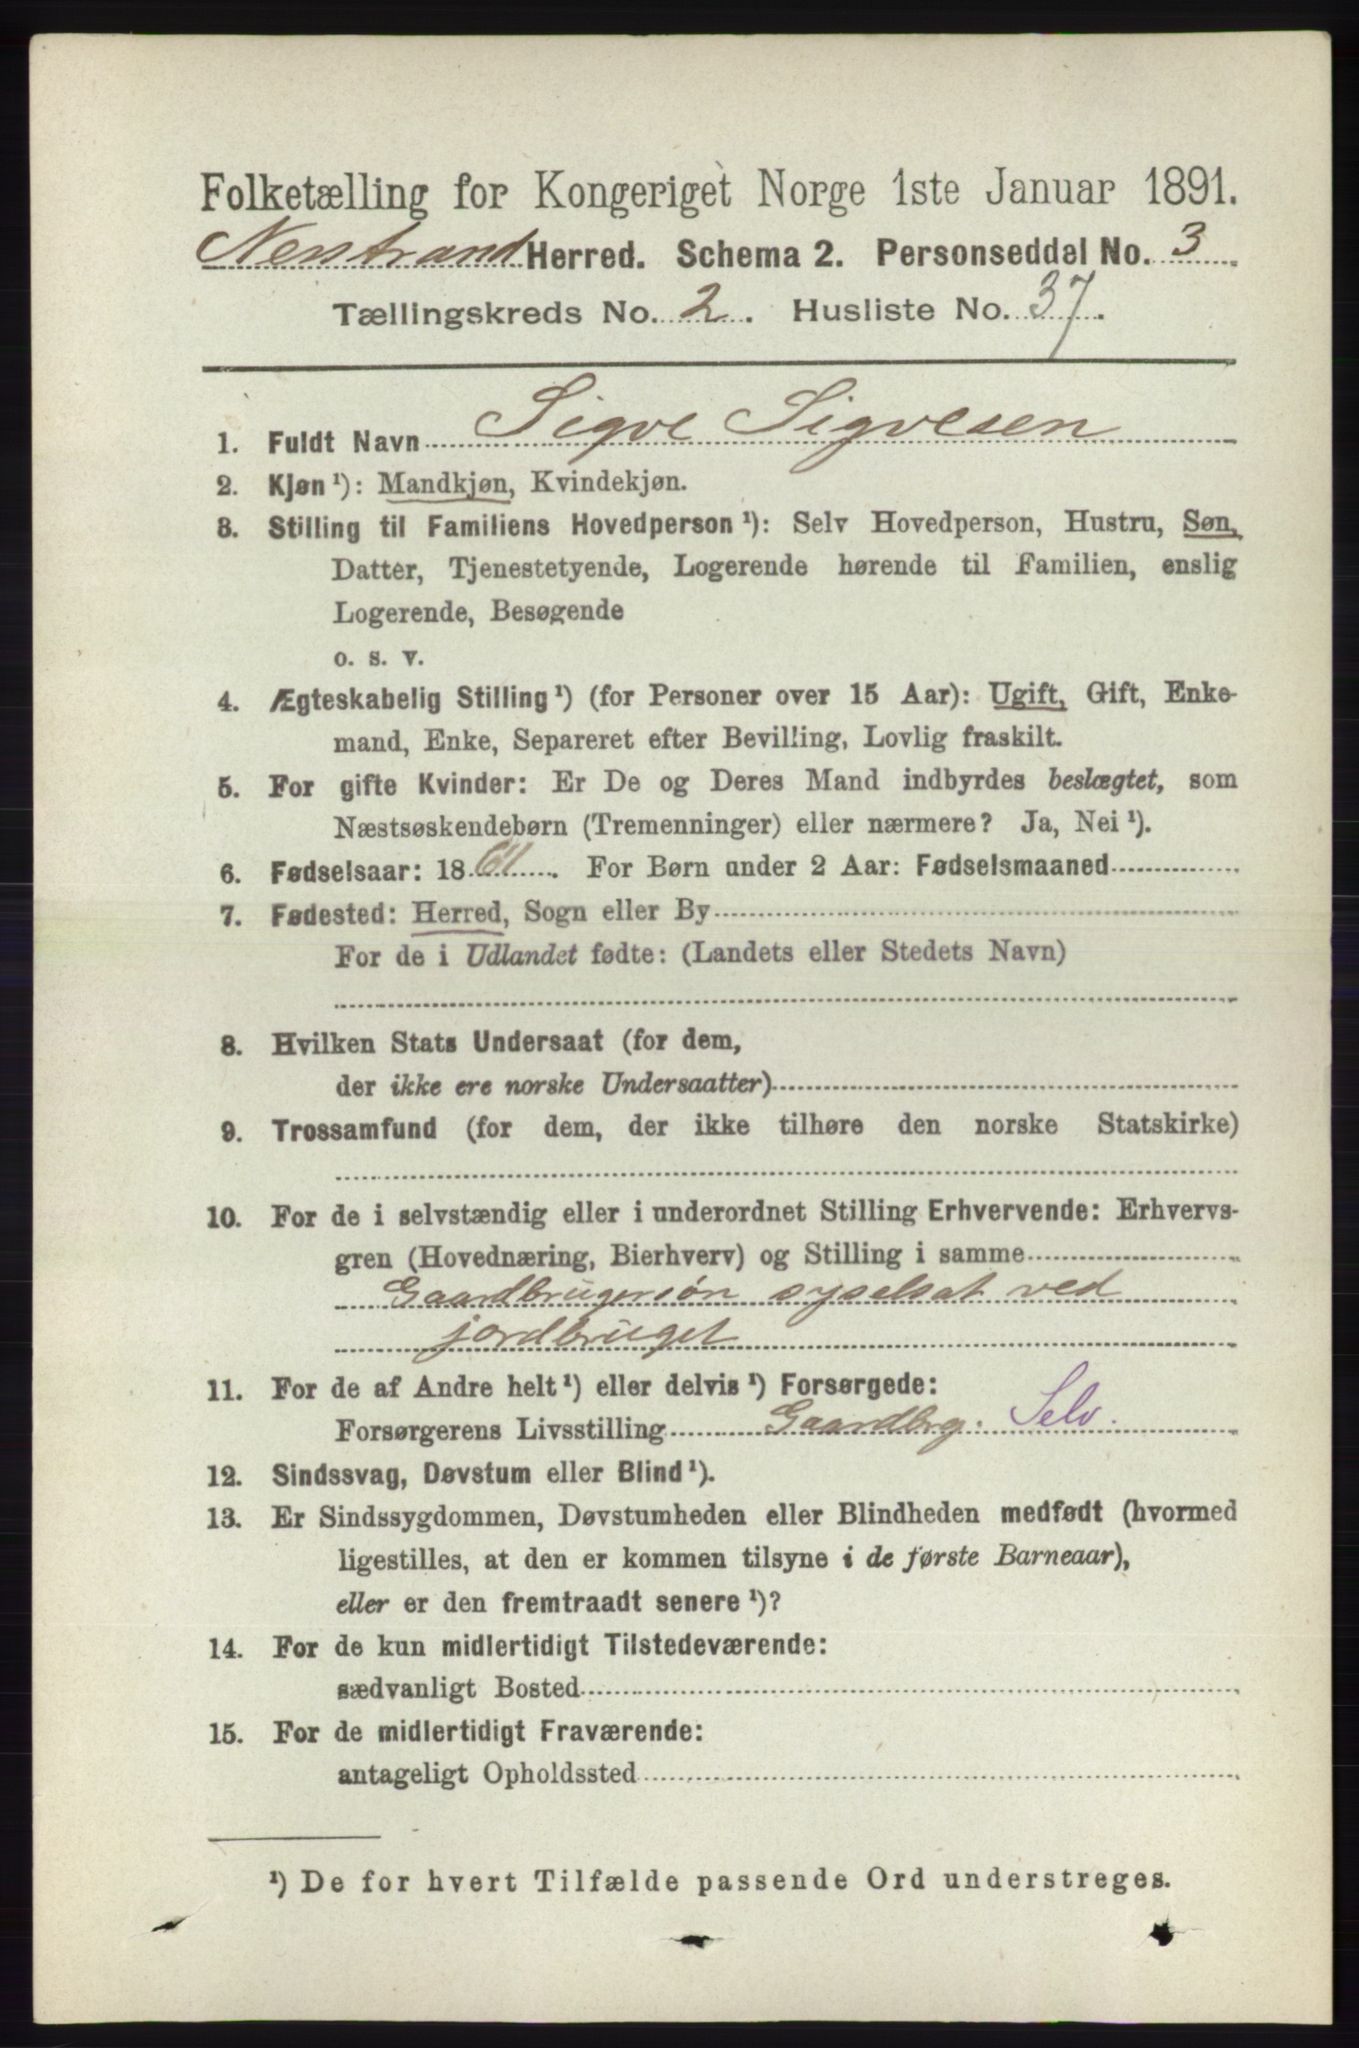 Folketælling for Kongeriget Norge 1ste Januar 1891.
Nerstrand Herred. Schema 2. Personseddel No. 3
Tællingskreds No. 2. Husliste No. 37.
1. Fuldt Navn Sigve Sigvesen
2. Kjøn ¹): Mandkjøn, Kvindekjøn.
3. Stilling til Familiens Hovedperson ¹): Selv Hovedperson, Hustru, Søn,
Datter, Tjenestetyende, Logerende hørende til Familien, enslig
Logerende, Besøgende
o. s. v.
4. Ægteskabelig Stilling ¹) (for Personer over 15 Aar): Ugift, Gift, Enke-
mand, Enke, Separeret efter Bevilling, Lovlig fraskilt.
5. For gifte Kvinder: Er De og Deres Mand indbyrdes beslægtet, som
Næstsøskendebørn (Tremenninger) eller nærmere? Ja, Nei ¹).
6. Fødselsaar: 18 . For Børn under 2 Aar: Fødselsmaaned
7. Fødested: Herred, Sogn eller By
For de i Udlandet fødte: (Landets eller Stedets Navn)
8. Hvilken Stats Undersaat (for dem,
der ikke ere norske Undersaatter)
9. Trossamfund (for dem, der ikke tilhøre den norske Statskirke)
10. For de i selvstændig eller i underordnet Stilling Erhvervende: Erhvervs-
gren (Hovednæring, Bierhverv) og Stilling i samme
Gaardbrugersøn syselsat ved
jordbruget
11. For de af Andre helt ¹) eller delvis ¹) Forsørgede:
Forsørgerens Livsstilling Gaardbrg. Selv.
12. Sindssvag, Døvstum eller Blind ¹).
13. Er Sindssygdommen, Døvstumheden eller Blindheden medfødt (hvormed
ligestilles, at den er kommen tilsyne i de første Barneaar),
eller er den fremtraadt senere ¹)?
14. For de kun midlertidigt Tilstedeværende:
sædvanligt Bosted
15. For de midlertidigt Fraværende:
antageligt Opholdssted
¹) De for hvert Tilfælde passende Ord understreges.